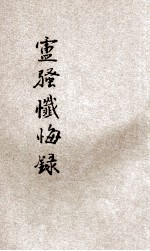 盧騷懺悔録